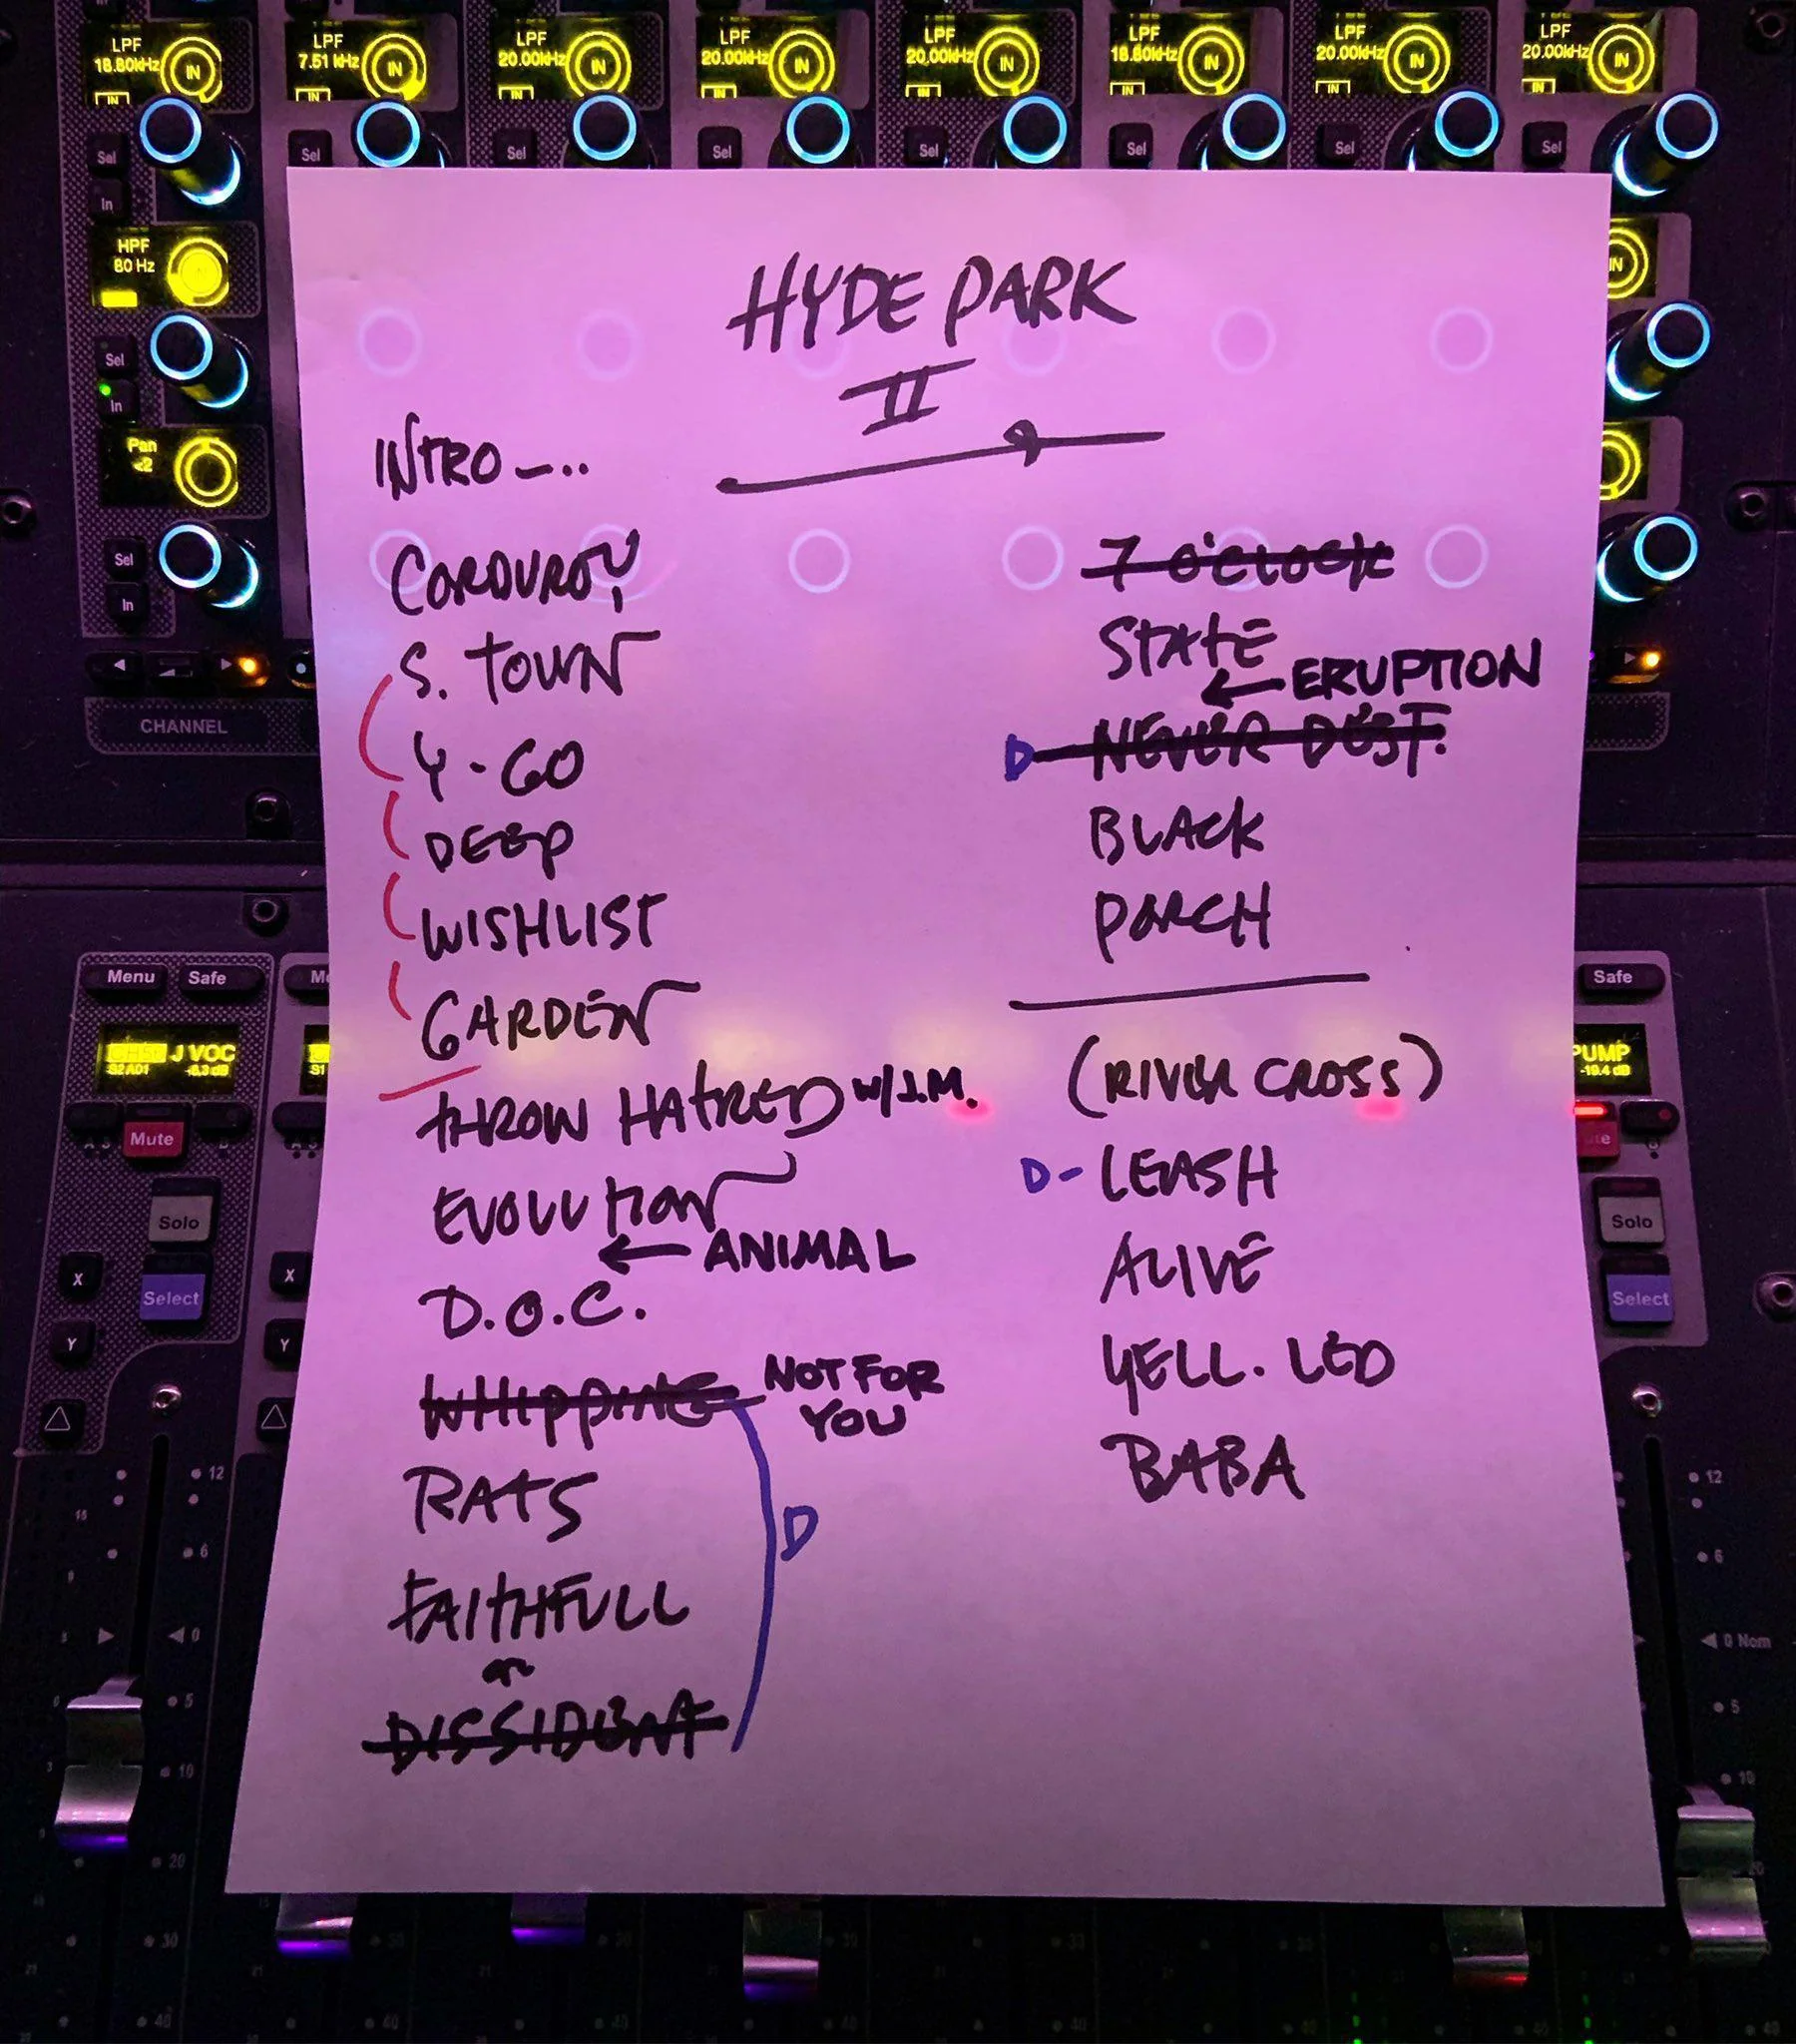 LPF LPF LPF LPF LPF LPF LPF LPF
18.80kHz 7.51 kHz 20.00kHz 20.00kHz 20.00kHz 18.80kHz 20.00kHz 20.00kHz
IN IN IN IN IN IN IN IN
IN IN IN IN IN IN IN IN
Sel Sel Sel Sel Sel Sel Sel Sel
In
HPF
80 Hz
IN
Sel
In
Pan
<2
Sel
In
CHANNEL
HYDE PARK
II
INTRO -..
CORDUROY
S. TOWN
Y-GO
DEEP
WISHLIST
GARDEN
THROW HATRED W/J.M.
EVOLUTION
← ANIMAL
D.O.C.
WHIPPING NOT FOR
YOU
RATS
D
FAITHFULL
or
DISSIDENT
7 O'CLOCK
STATE
← ERUPTION
D NEVER DEST.
BLACK
PORCH
(RIVER CROSS)
D- LEASH
ALIVE
YELL. LED
BABA
Menu Safe
J VOC
S2A01 -8.3dB
Mute
Solo
X X
Select
Y Y
12
15
6
0
5
10
20
30
40
Safe
PUMP
-19.4 dB
Solo
Select
12
6
0 Nom
5
10